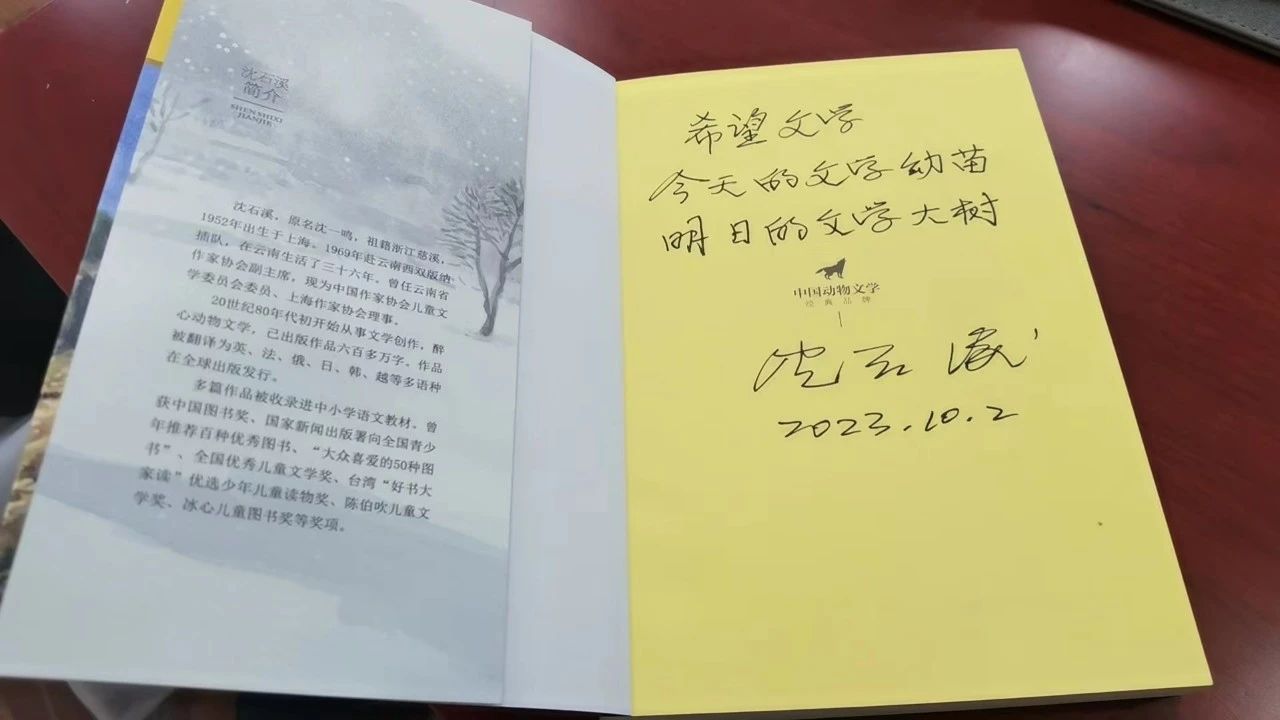 沈石溪
简介
SHEN SHIXI
JIANJIE
沈石溪，原名沈一鸣，祖籍浙江慈溪，
1952年出生于上海。1969年赴云南西双版纳
插队，在云南生活了三十六年。曾任云南省
作家协会副主席，现为中国作家协会儿童文
学委员会委员、上海作家协会理事。
20世纪80年代初开始从事文学创作，醉
心动物文学，已出版作品六百多万字。作品
被翻译为英、法、俄、日、韩、越等多语种
在全球出版发行。
多篇作品被收录进中小学语文教材。曾
获中国图书奖、国家新闻出版署向全国青少
年推荐百种优秀图书、“大众喜爱的50种图
书”、全国优秀儿童文学奖、台湾“好书大
家读”优选少年儿童读物奖、陈伯吹儿童文
学奖、冰心儿童图书奖等奖项。
希望文学
今天的文学幼苗
明日的文学大树
中国动物文学
经典品牌
沈石溪
2023.10.2